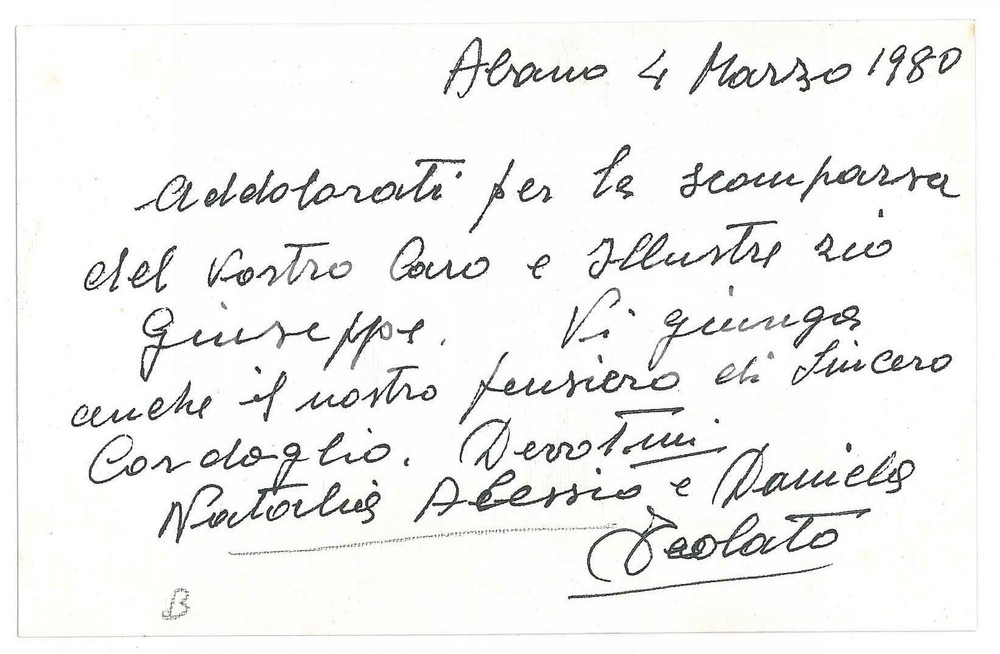 Abano 4 Marzo 1980
Addolorati per la scomparsa
del Vostro Caro e Illustre zio
Giuseppe. Vi giunga
anche il nostro pensiero di Sincero
Cordoglio. Devot.mi
Natalia Alessio e Daniela
B